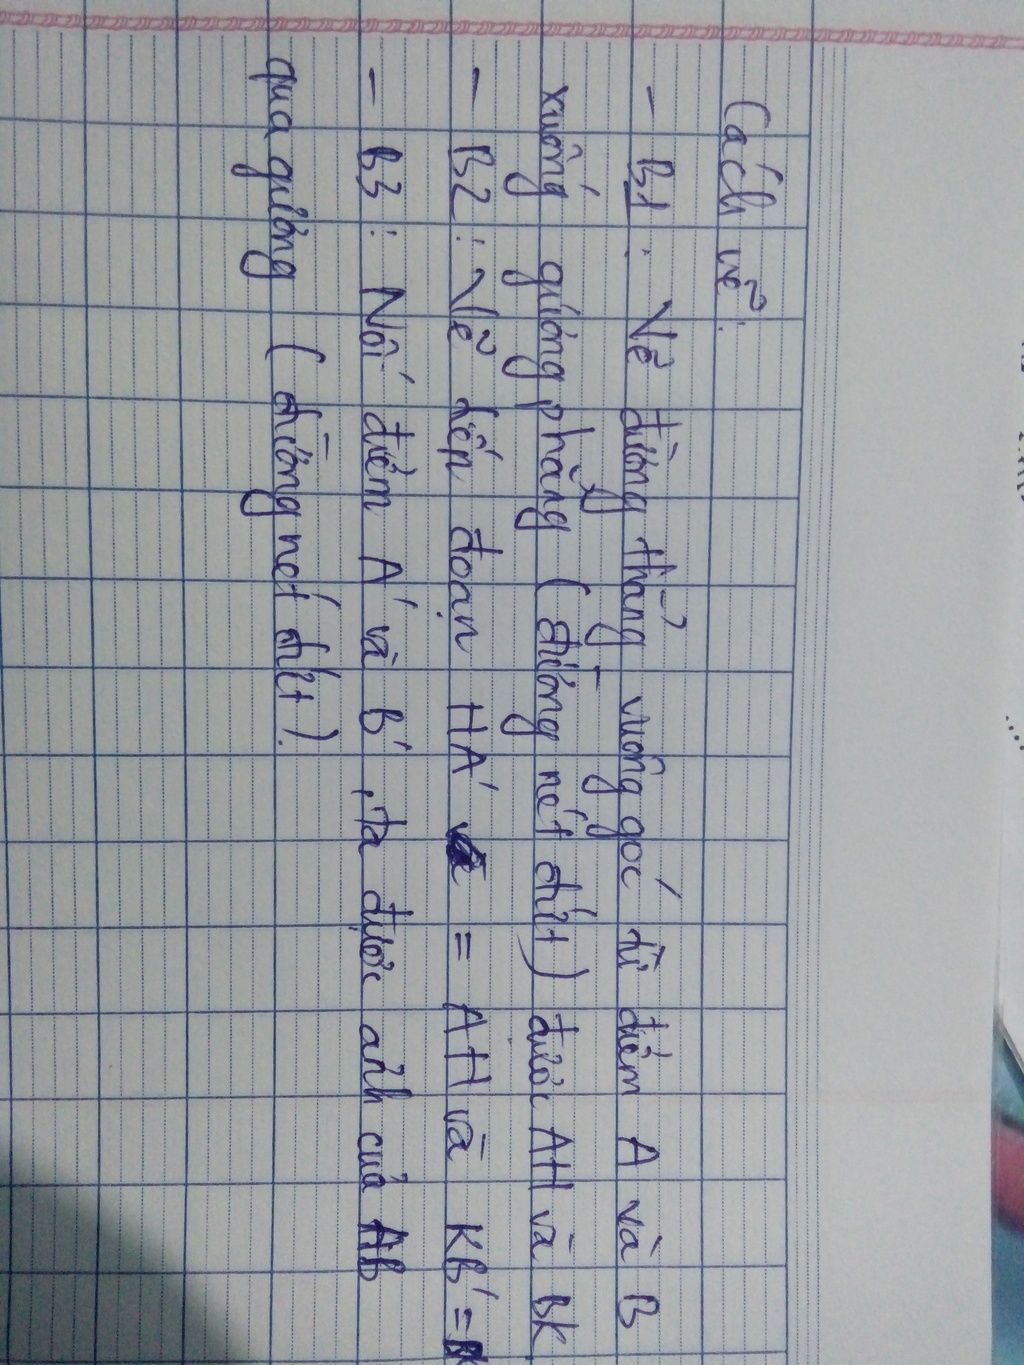 Cách vẽ:
- B1: Vẽ đường thẳng vuông góc từ điểm A và B
xuống gương phẳng (đường nét đứt) được AH và BK
- B2: Vẽ tiếp đoạn HA' = AH và KB' =
- B3: Nối điểm A' và B', ta được ảnh của AB
qua gương (đường nét đứt).